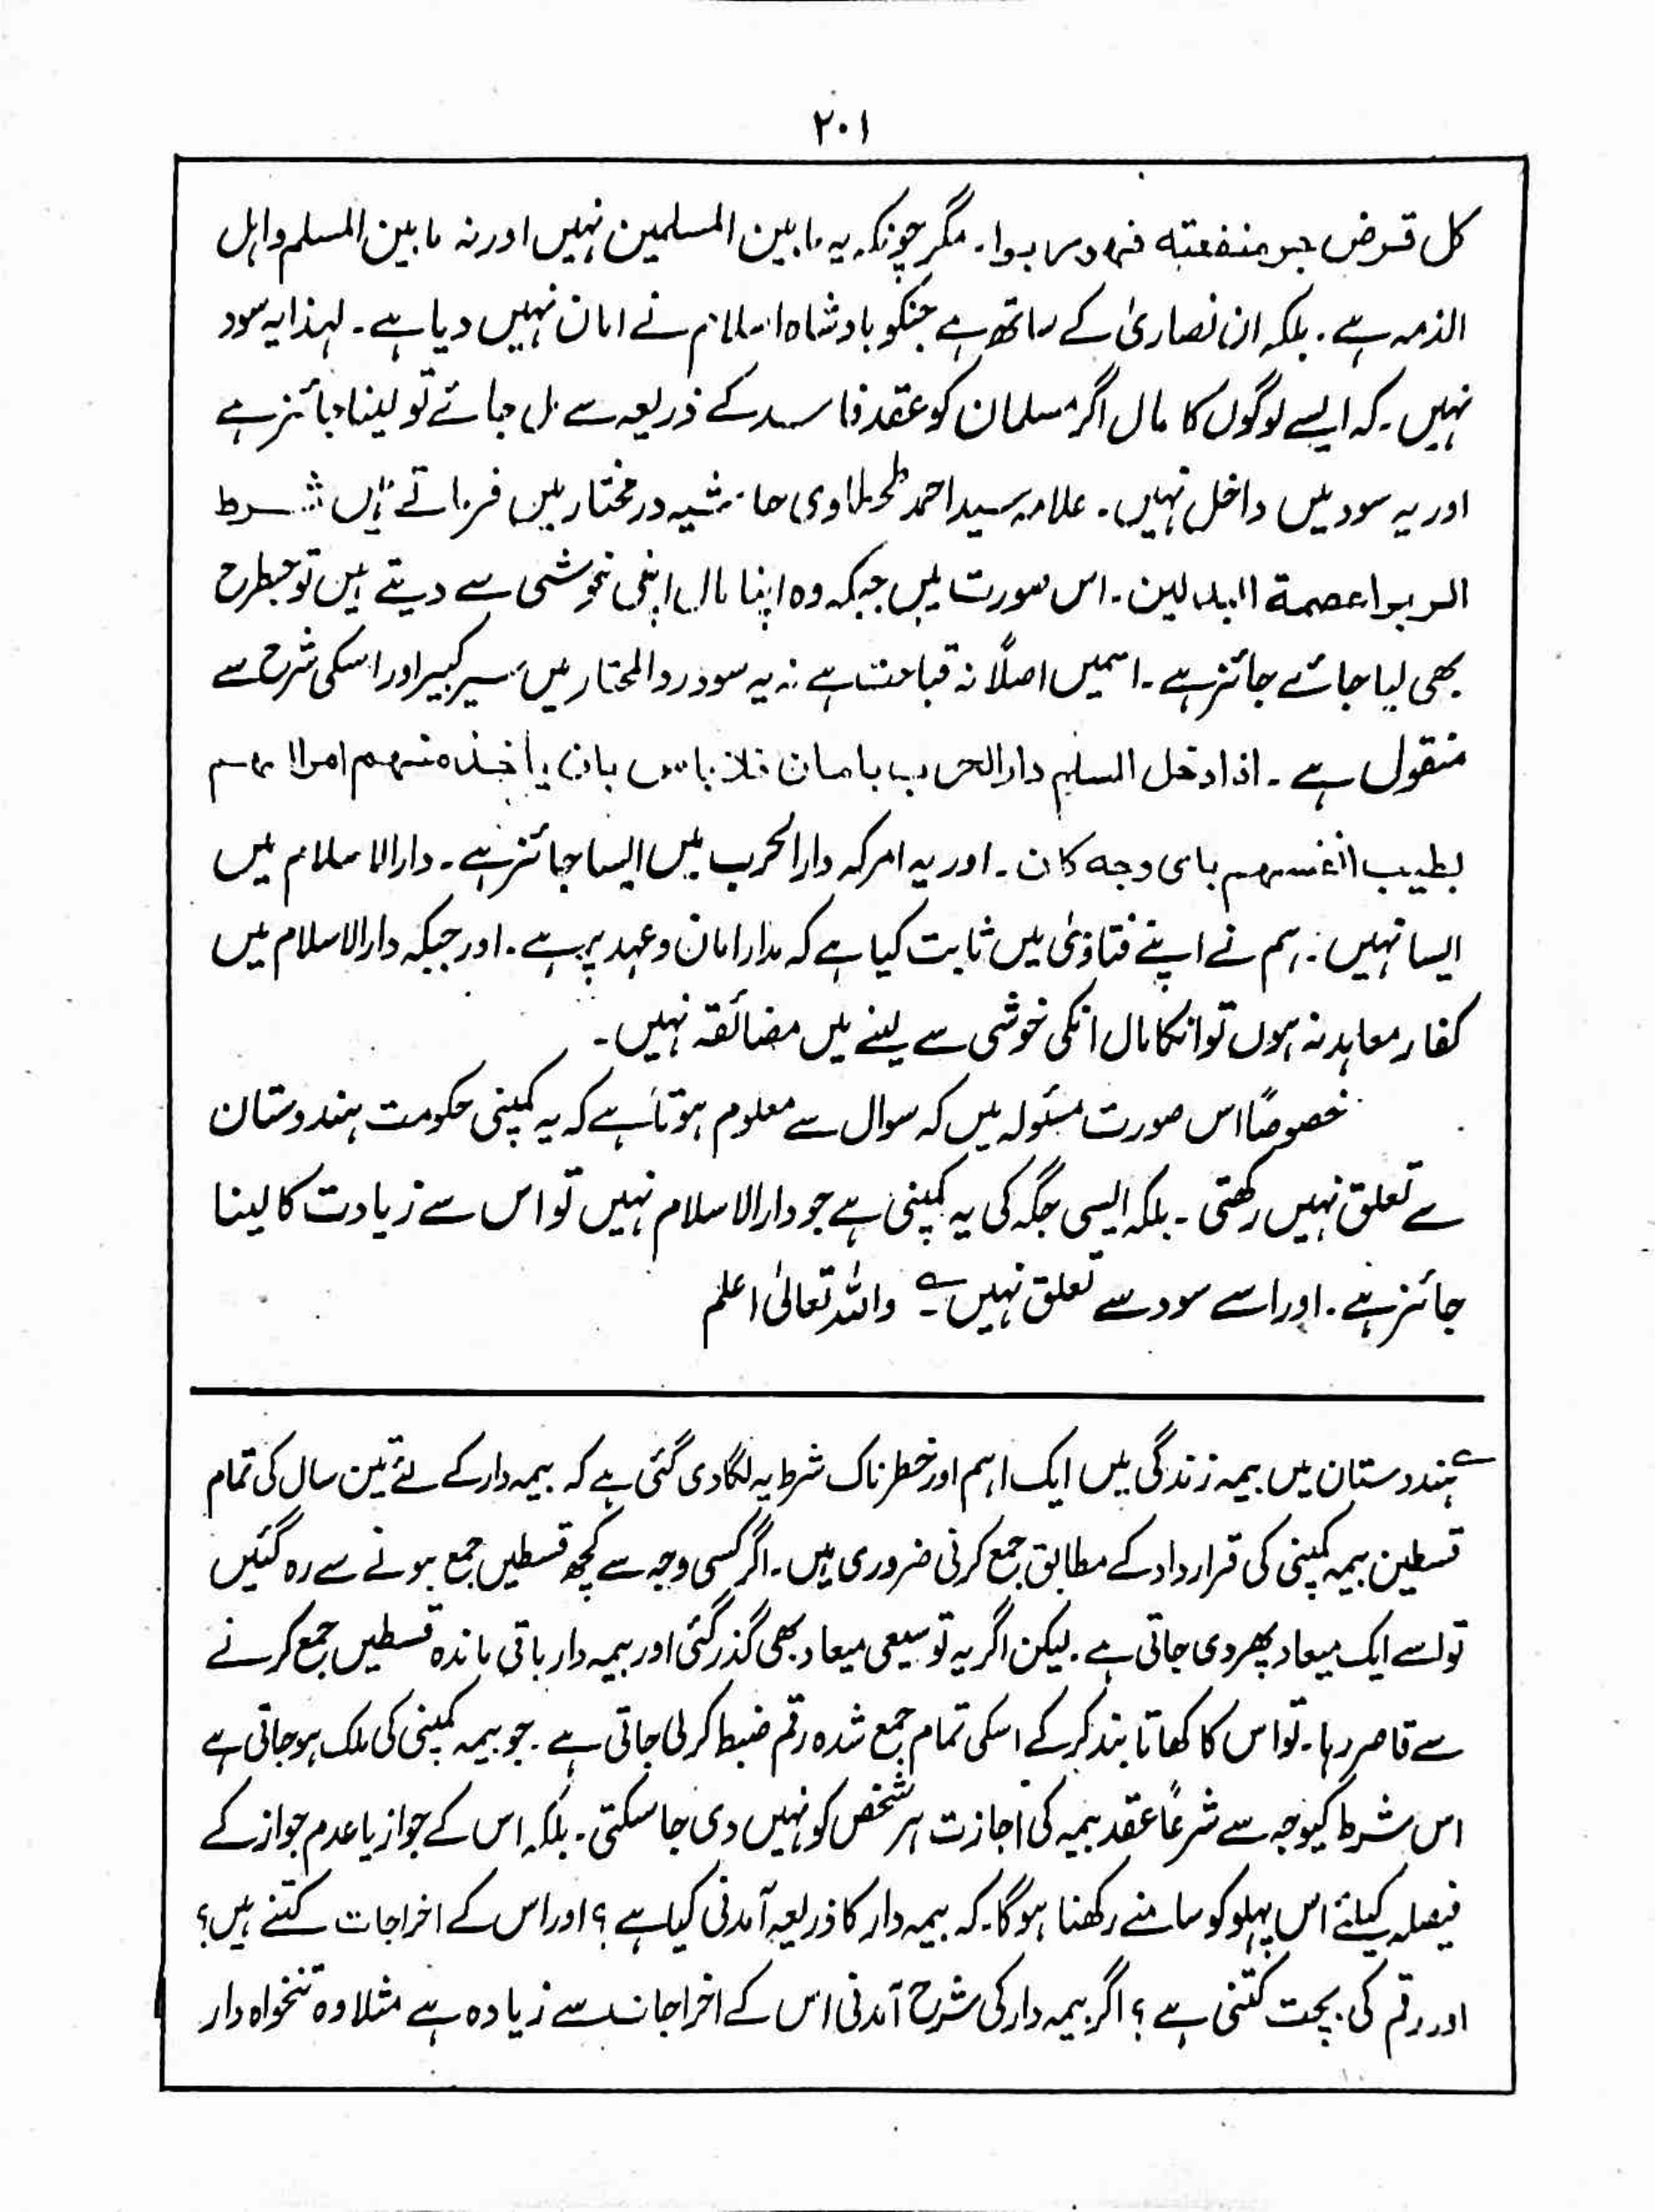 ۲۰۱
کل قرض جر منفعتہ فہو ربوا۔ مگر چونکہ یہ مابین المسلمین نہیں اور نہ مابین المسلم و اہل
الذمہ ہے۔ بلکہ ان نصاریٰ کے ساتھ ہے جنکو بادشاہ اسلام نے امان نہیں دیا ہے۔ لہذا یہ سود
نہیں۔ کہ ایسے لوگوں کا مال اگر مسلمان کو عقد فاسد کے ذریعہ سے مل جائے تو لینا جائز ہے
اور یہ سود میں داخل نہیں۔ علامہ سید احمد طحطاوی حاشیہ در مختار میں فرماتے ہیں شرط
الربوا عصمة البدلین۔ اس صورت میں جبکہ وہ اپنا مال اپنی خوشی سے دیتے ہیں تو جسطرح
بھی لیا جائے جائز ہے۔ اسمیں اصلاً نہ قباحت ہے نہ یہ سود رد المحتار میں سیر کبیر اور اسکی شرح سے
منقول ہے۔ اذا دخل المسلم دار الحرب بامان فلا باس بان یأخذ منہم اموالہم
بطیب انفسہم بای وجہ کان۔ اور یہ امر کہ دار الحرب میں ایسا جائز ہے۔ دار الاسلام میں
ایسا نہیں۔ ہم نے اپنے فتاویٰ میں ثابت کیا ہے کہ مدار امان و عہد پر ہے۔ اور جبکہ دار الاسلام میں
کفار معاہد نہ ہوں تو انکا مال انکی خوشی سے لینے میں مضائقہ نہیں۔
خصوصاً اس صورت مسئولہ میں کہ سوال سے معلوم ہوتا ہے کہ یہ کمپنی حکومت ہندوستان
سے تعلق نہیں رکھتی۔ بلکہ ایسی جگہ کی یہ کمپنی ہے جو دار الاسلام نہیں تو اس سے زیادت کا لینا
جائز ہے۔ اور اسے سود سے تعلق نہیں۔ واللہ تعالیٰ اعلم
ہندوستان میں بیمہ زندگی میں ایک اہم اور خطرناک شرط یہ لگا دی گئی ہے کہ بیمہ دار کے لئے تین سال کی تمام
قسطیں بیمہ کمپنی کی قرارداد کے مطابق جمع کرنی ضروری ہیں۔ اگر کسی وجہ سے کچھ قسطیں جمع ہونے سے رہ گئیں
تو اسے ایک میعاد پھر دی جاتی ہے۔ لیکن اگر یہ توسیعی میعاد بھی گذر گئی اور بیمہ دار باقی ماندہ قسطیں جمع کرنے
سے قاصر رہا۔ تو اس کا کھاتا بند کر کے اسکی تمام جمع شدہ رقم ضبط کر لی جاتی ہے۔ جو بیمہ کمپنی کی ملک ہو جاتی ہے
اس شرط کیوجہ سے شرعاً عقد بیمہ کی اجازت ہر شخص کو نہیں دی جا سکتی۔ بلکہ اس کے جواز یا عدم جواز کے
فیصلہ کیلئے اس پہلو کو سامنے رکھنا ہوگا۔ کہ بیمہ دار کا ذریعہ آمدنی کیا ہے؟ اور اس کے اخراجات کتنے ہیں؟
اور رقم کی بچت کتنی ہے؟ اگر بیمہ دار کی شرح آمدنی اس کے اخراجات سے زیادہ ہے مثلا وہ تنخواہ دار